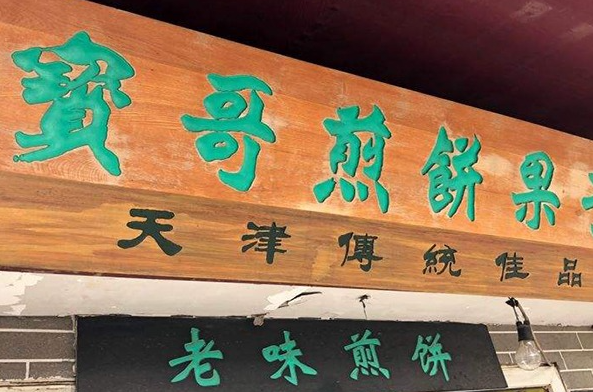 寶哥煎餅果
天津傳統佳品
老味煎餅